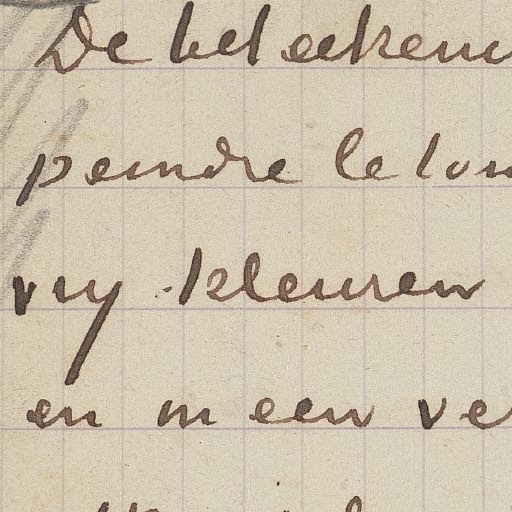 De beteeken
peindre le ton
vry kleuren
en in een ve